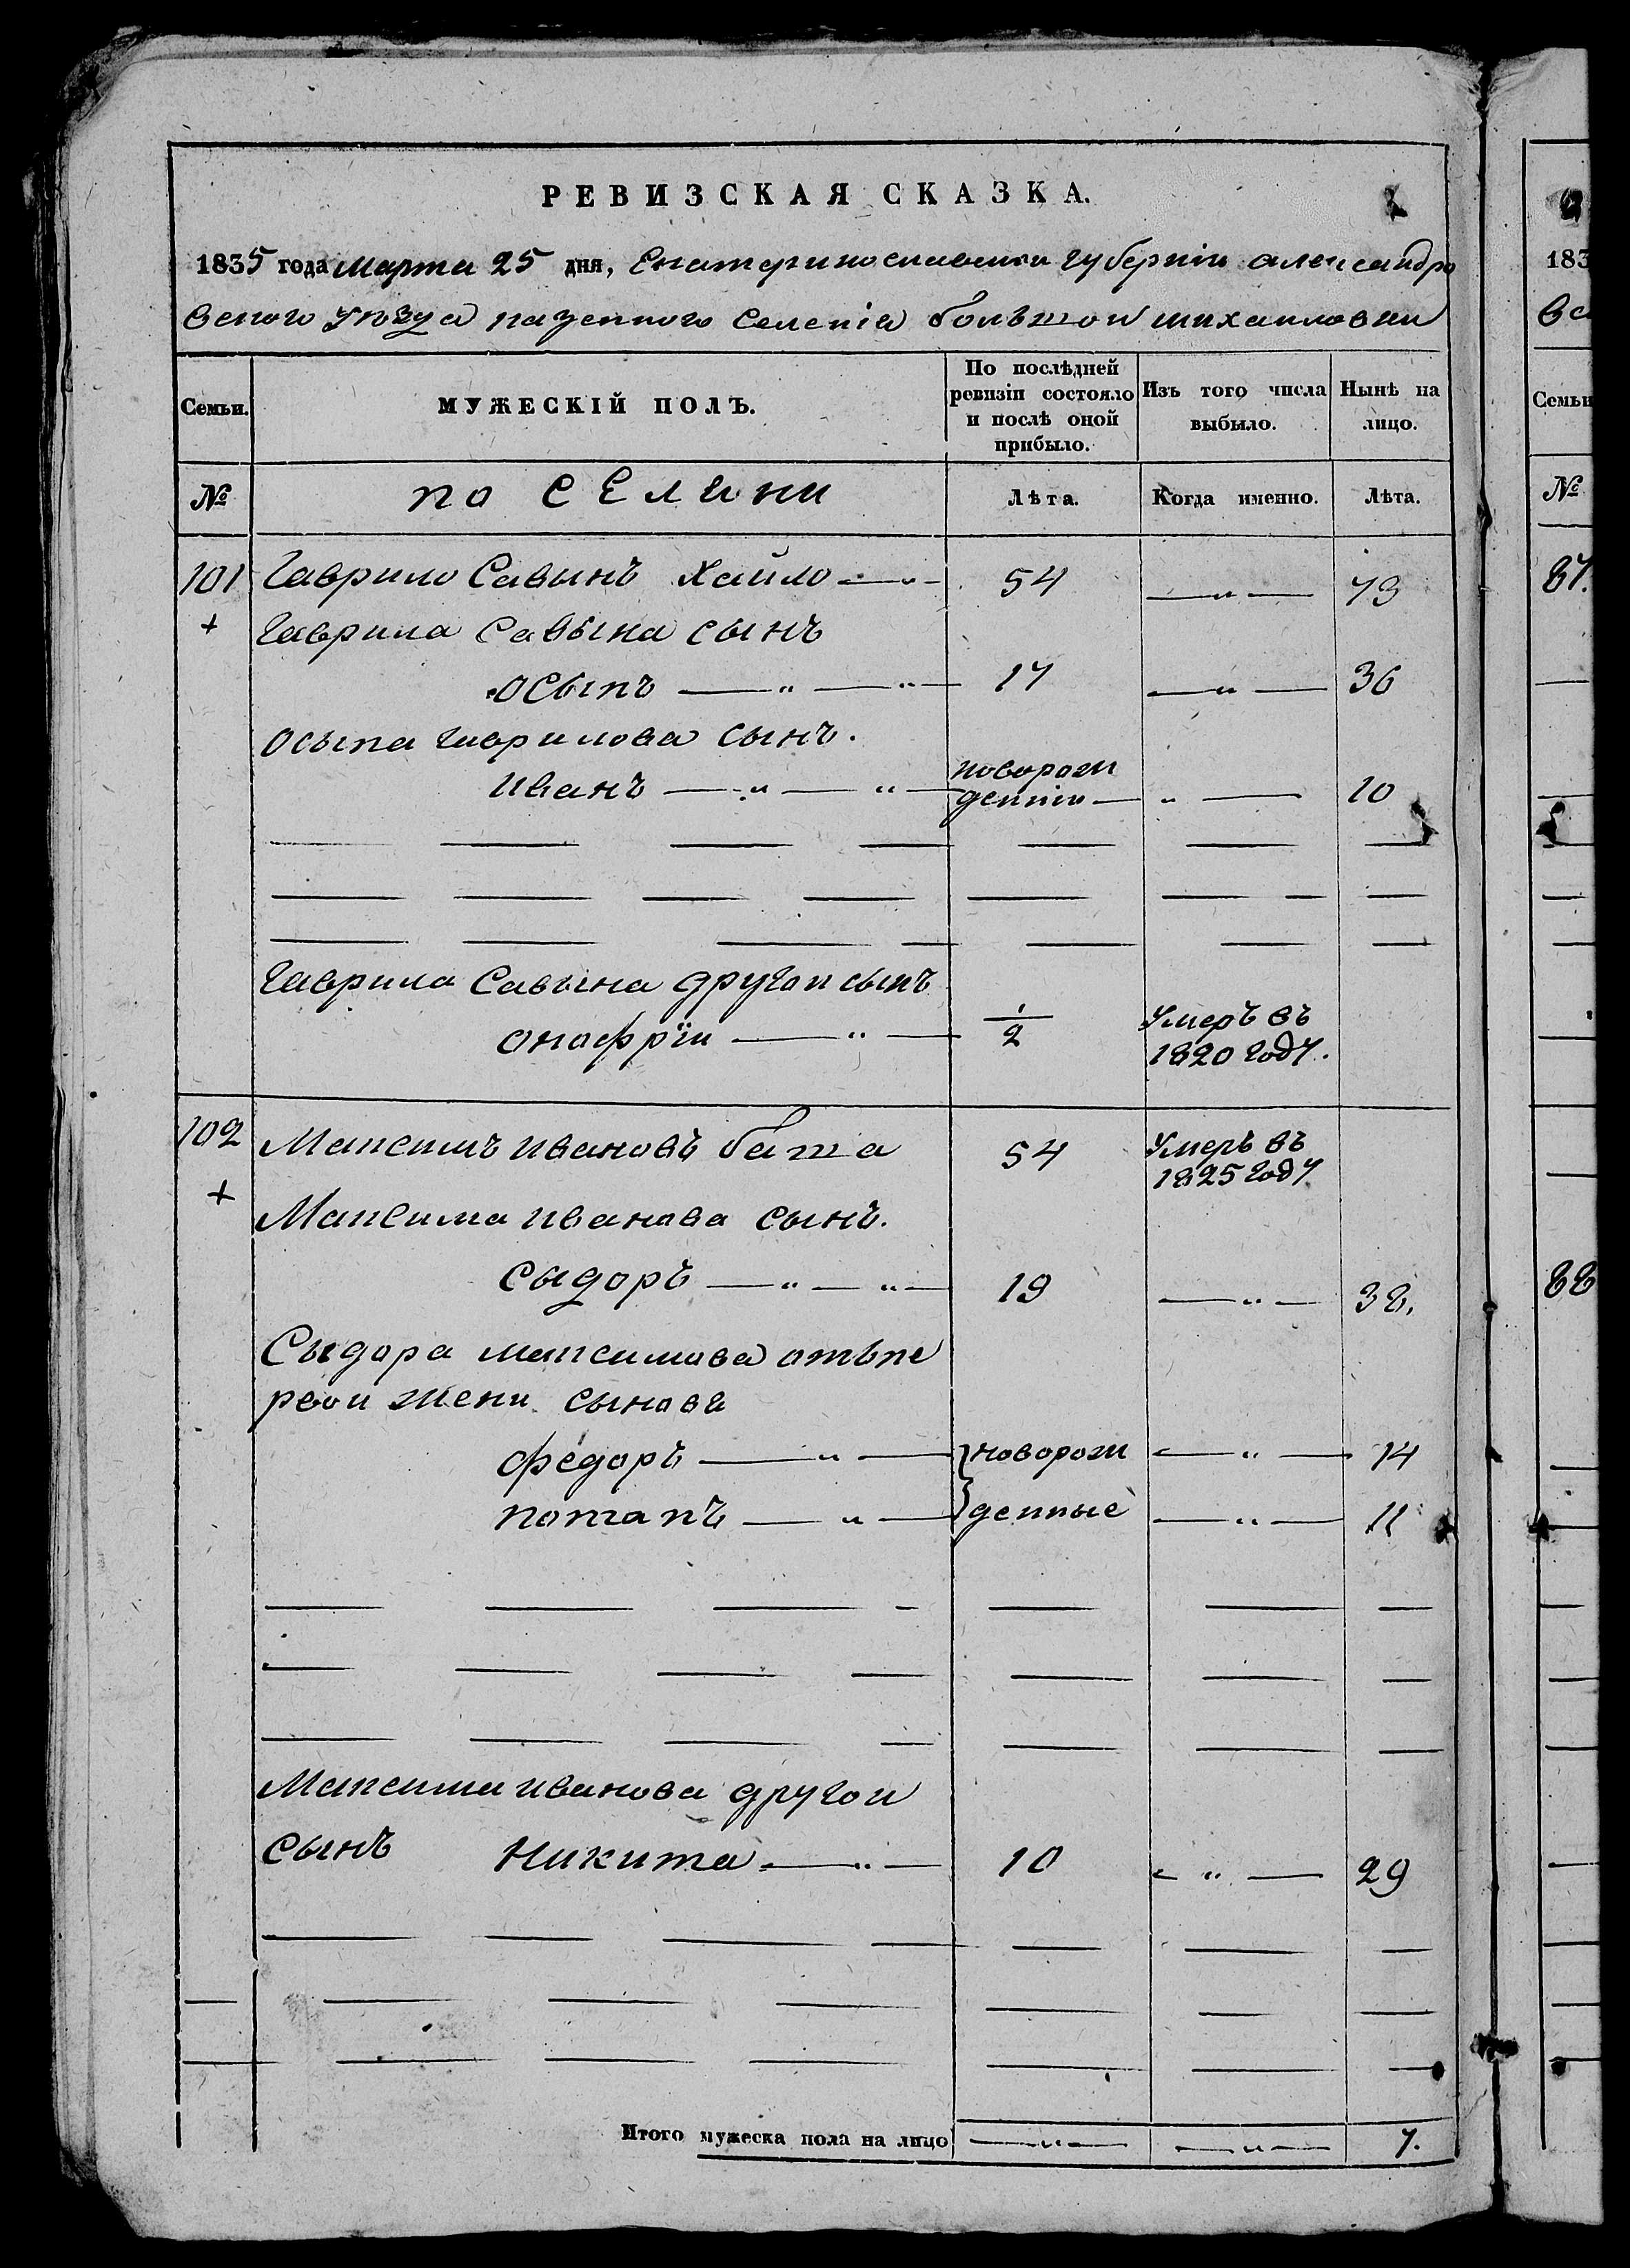 РЕВИЗСКАЯ СКАЗКА.
1835 года марта 25 дня, Екатеринославской губернiи александро
вского уѣзда казенного селенiя большой михайловки
Семьи.
МУЖЕСКІЙ ПОЛЪ.
По послѣдней ревизіи состояло и послѣ оной прибыло.
Изъ того числа выбыло.
Нынѣ на лицо.
№ поселяни Лѣта. Когда именно. Лѣта.
101 Гаврило Савынъ Хайло — " — 54 — " — 73
+ Гаврила Савына сынъ
осыпъ — " — " — 17 — " — 36
осыпа гаврилова сынъ.
иванъ — " — " — новорож
денни — " — 10
Гаврила Савына другои сынъ
онофрїи — " — 1/2 Умеръ въ
1820 году.
102 Максимъ ивановъ баша 54 Умеръ въ
1825 году
+ Максима иванова сынъ.
сыдоръ — " — " — 19 — " — 38.
Сыдора максимова отъпе
рвои жени сынова
федоръ — " — } новорож — " — 14
потапъ — " — } денные — " — 11
Максима иванова другои
сынъ Никита — " — 10 — " — 29
Итого мужеска пола на лицо — " — — " — 7.
183
вс
Семьи
№
87.
88